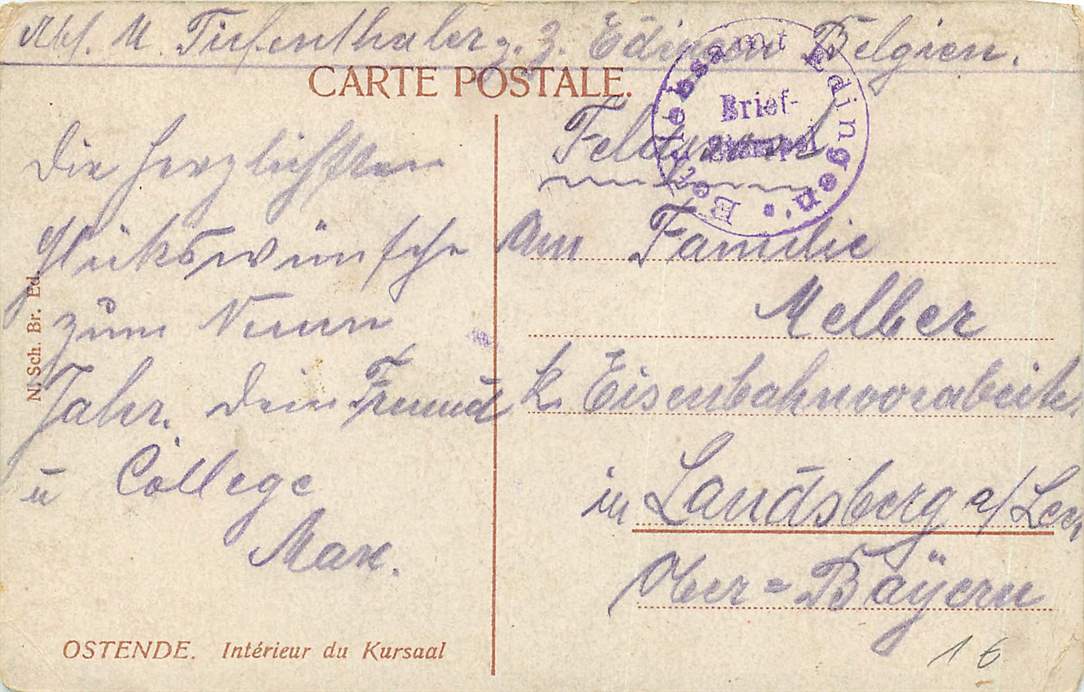 Abs. M. Tiefenthaler z. Z. Edingen Belgien.
CARTE POSTALE.
Betriebsamt Edingen
Brief-
Stempel
Die herzlichsten
Glükswünsche
zum Neuen
Jahr. Dein Freund
u College
Max.
N. Sch. Br. Ed.
OSTENDE. Intérieur du Kursaal
Feldpost
An Familie
Melber
k Eisenbahnvorarbeite.
in Landsberg a/Lech
Ober=Bayern
16